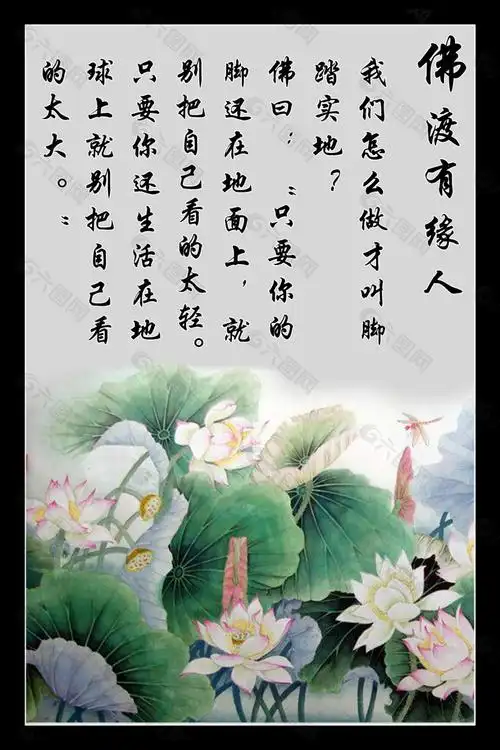 佛渡有缘人
我们怎么做才叫脚
踏实地？
佛曰：“只要你的
脚还在地面上，就
别把自己看的太轻。
只要你还生活在地
球上就别把自己看
的太大。”
六图网